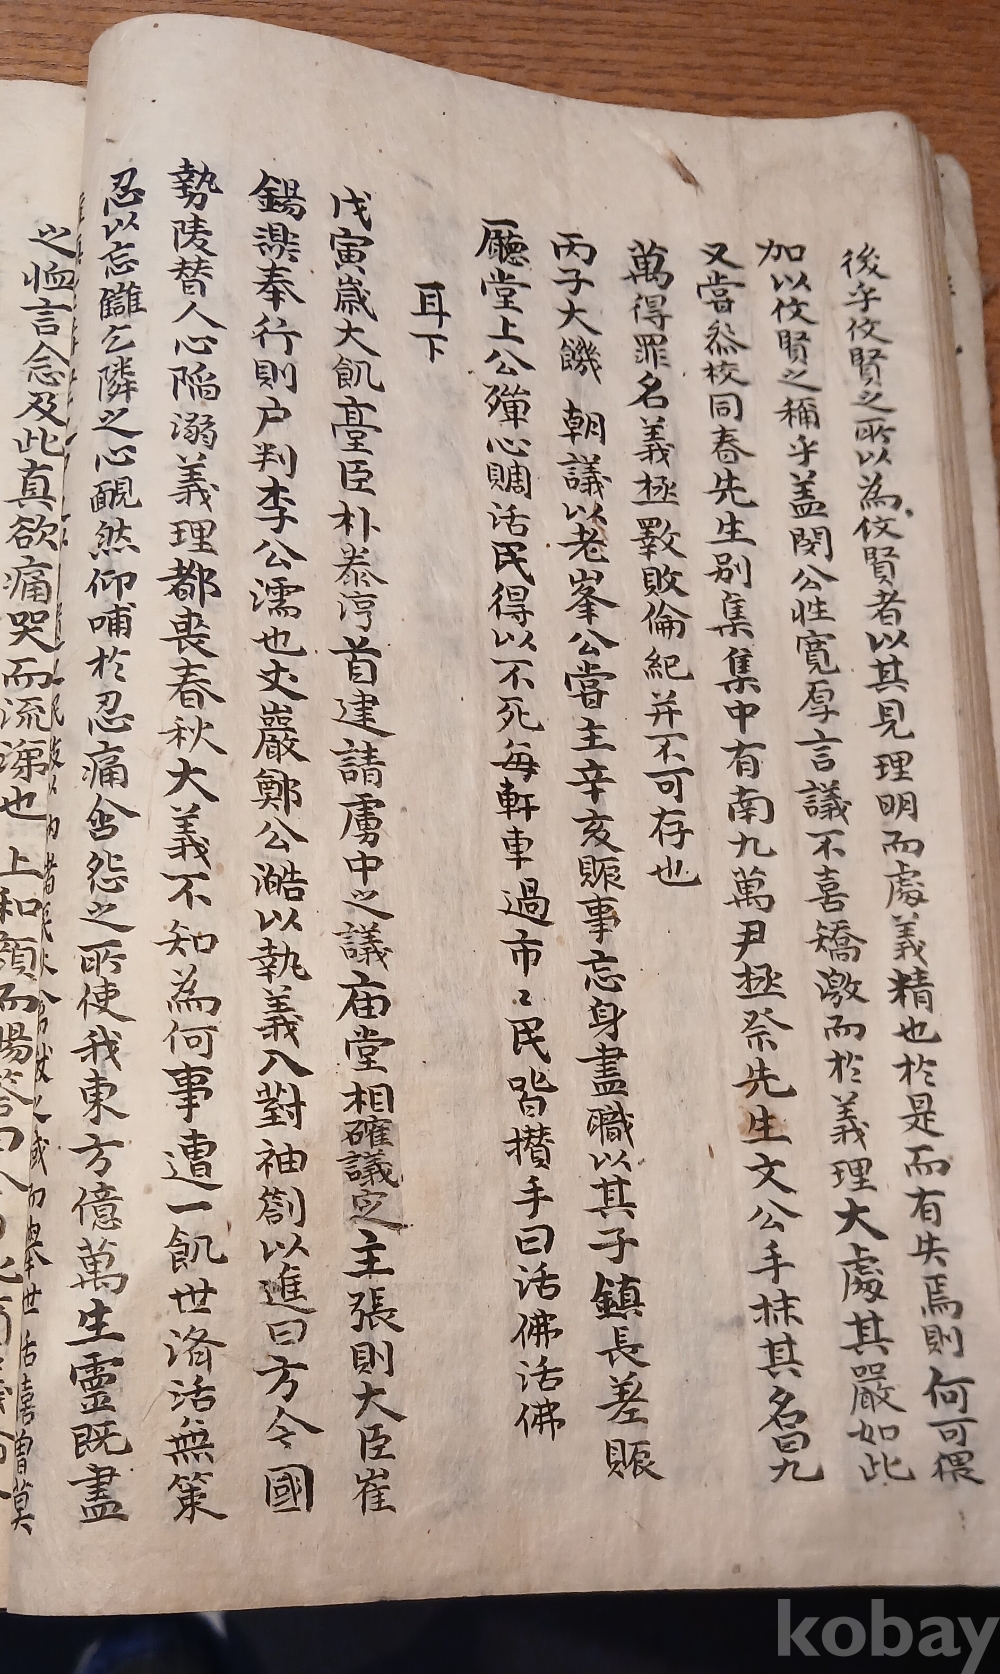 後乎攸賢之所以為攸賢者以其見理明而處義精也於是而有失焉則何可猥
加以攸賢之稱乎盖閔公性寛厚言議不喜矯激而於義理大處其嚴如此
又嘗叅校同春先生别集集中有南九萬尹拯祭先生文公手抹其名曰九
萬得罪名義拯斁敗倫紀并不可存也
丙子大饑 朝議以老峯公嘗主辛亥賑事忘身盡職以其子鎮長差賑
廳堂上公殫心賙活民得以不死每軒車過市〻民皆攅手曰活佛活佛
耳下
戊寅歳大飢臺臣朴泰淳首建請虜中之議庙堂相確議定主張則大臣崔
錫 奉行則户判李公濡也丈巖鄭公澔以執義入對袖劄以進曰方今國
勢陵替人心陷溺義理都喪春秋大義不知為何事遭一飢世済活無策
忍以忘讎乞隣之心靦然仰哺於忍痛含怨之所使我東方億萬生靈既盡
之恤言念及此真欲痛哭而流涕也 上和顔而賜答曰
kobay